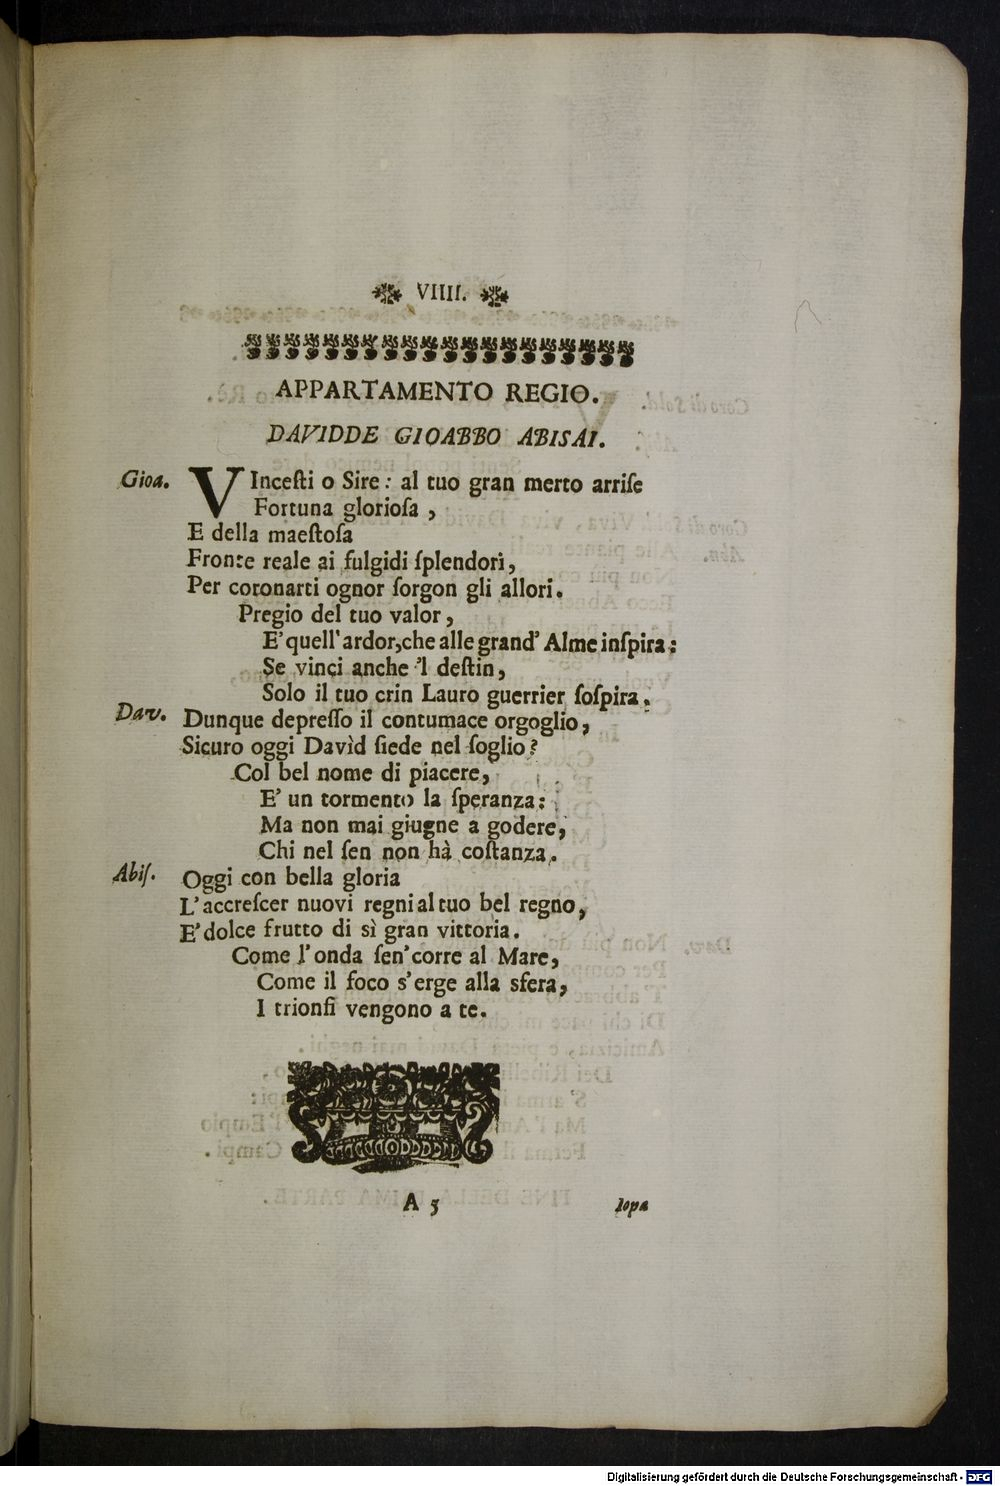 VIIII.
APPARTAMENTO REGIO.
DAVIDDE GIOABBO ABISAI.
Gioa. VIncesti o Sire: al tuo gran merto arrise
Fortuna gloriosa,
E della maestosa
Fronte reale ai fulgidi splendori,
Per coronarti ognor sorgon gli allori.
Pregio del tuo valor,
E' quell' ardor, che alle grand' Alme inspira:
Se vinci anche 'l destin,
Solo il tuo crin Lauro guerrier sospira.
Dav. Dunque depresso il contumace orgoglio,
Sicuro oggi Davìd siede nel soglio?
Col bel nome di piacere,
E' un tormento la speranza:
Ma non mai giugne a godere,
Chi nel sen non hà costanza.
Abis. Oggi con bella gloria
L' accrescer nuovi regni al tuo bel regno,
E' dolce frutto di sì gran vittoria.
Come l' onda sen' corre al Mare,
Come il foco s' erge alla sfera,
I trionfi vengono a te.
A 5 Iopa
Digitalisierung gefördert durch die Deutsche Forschungsgemeinschaft - DFG